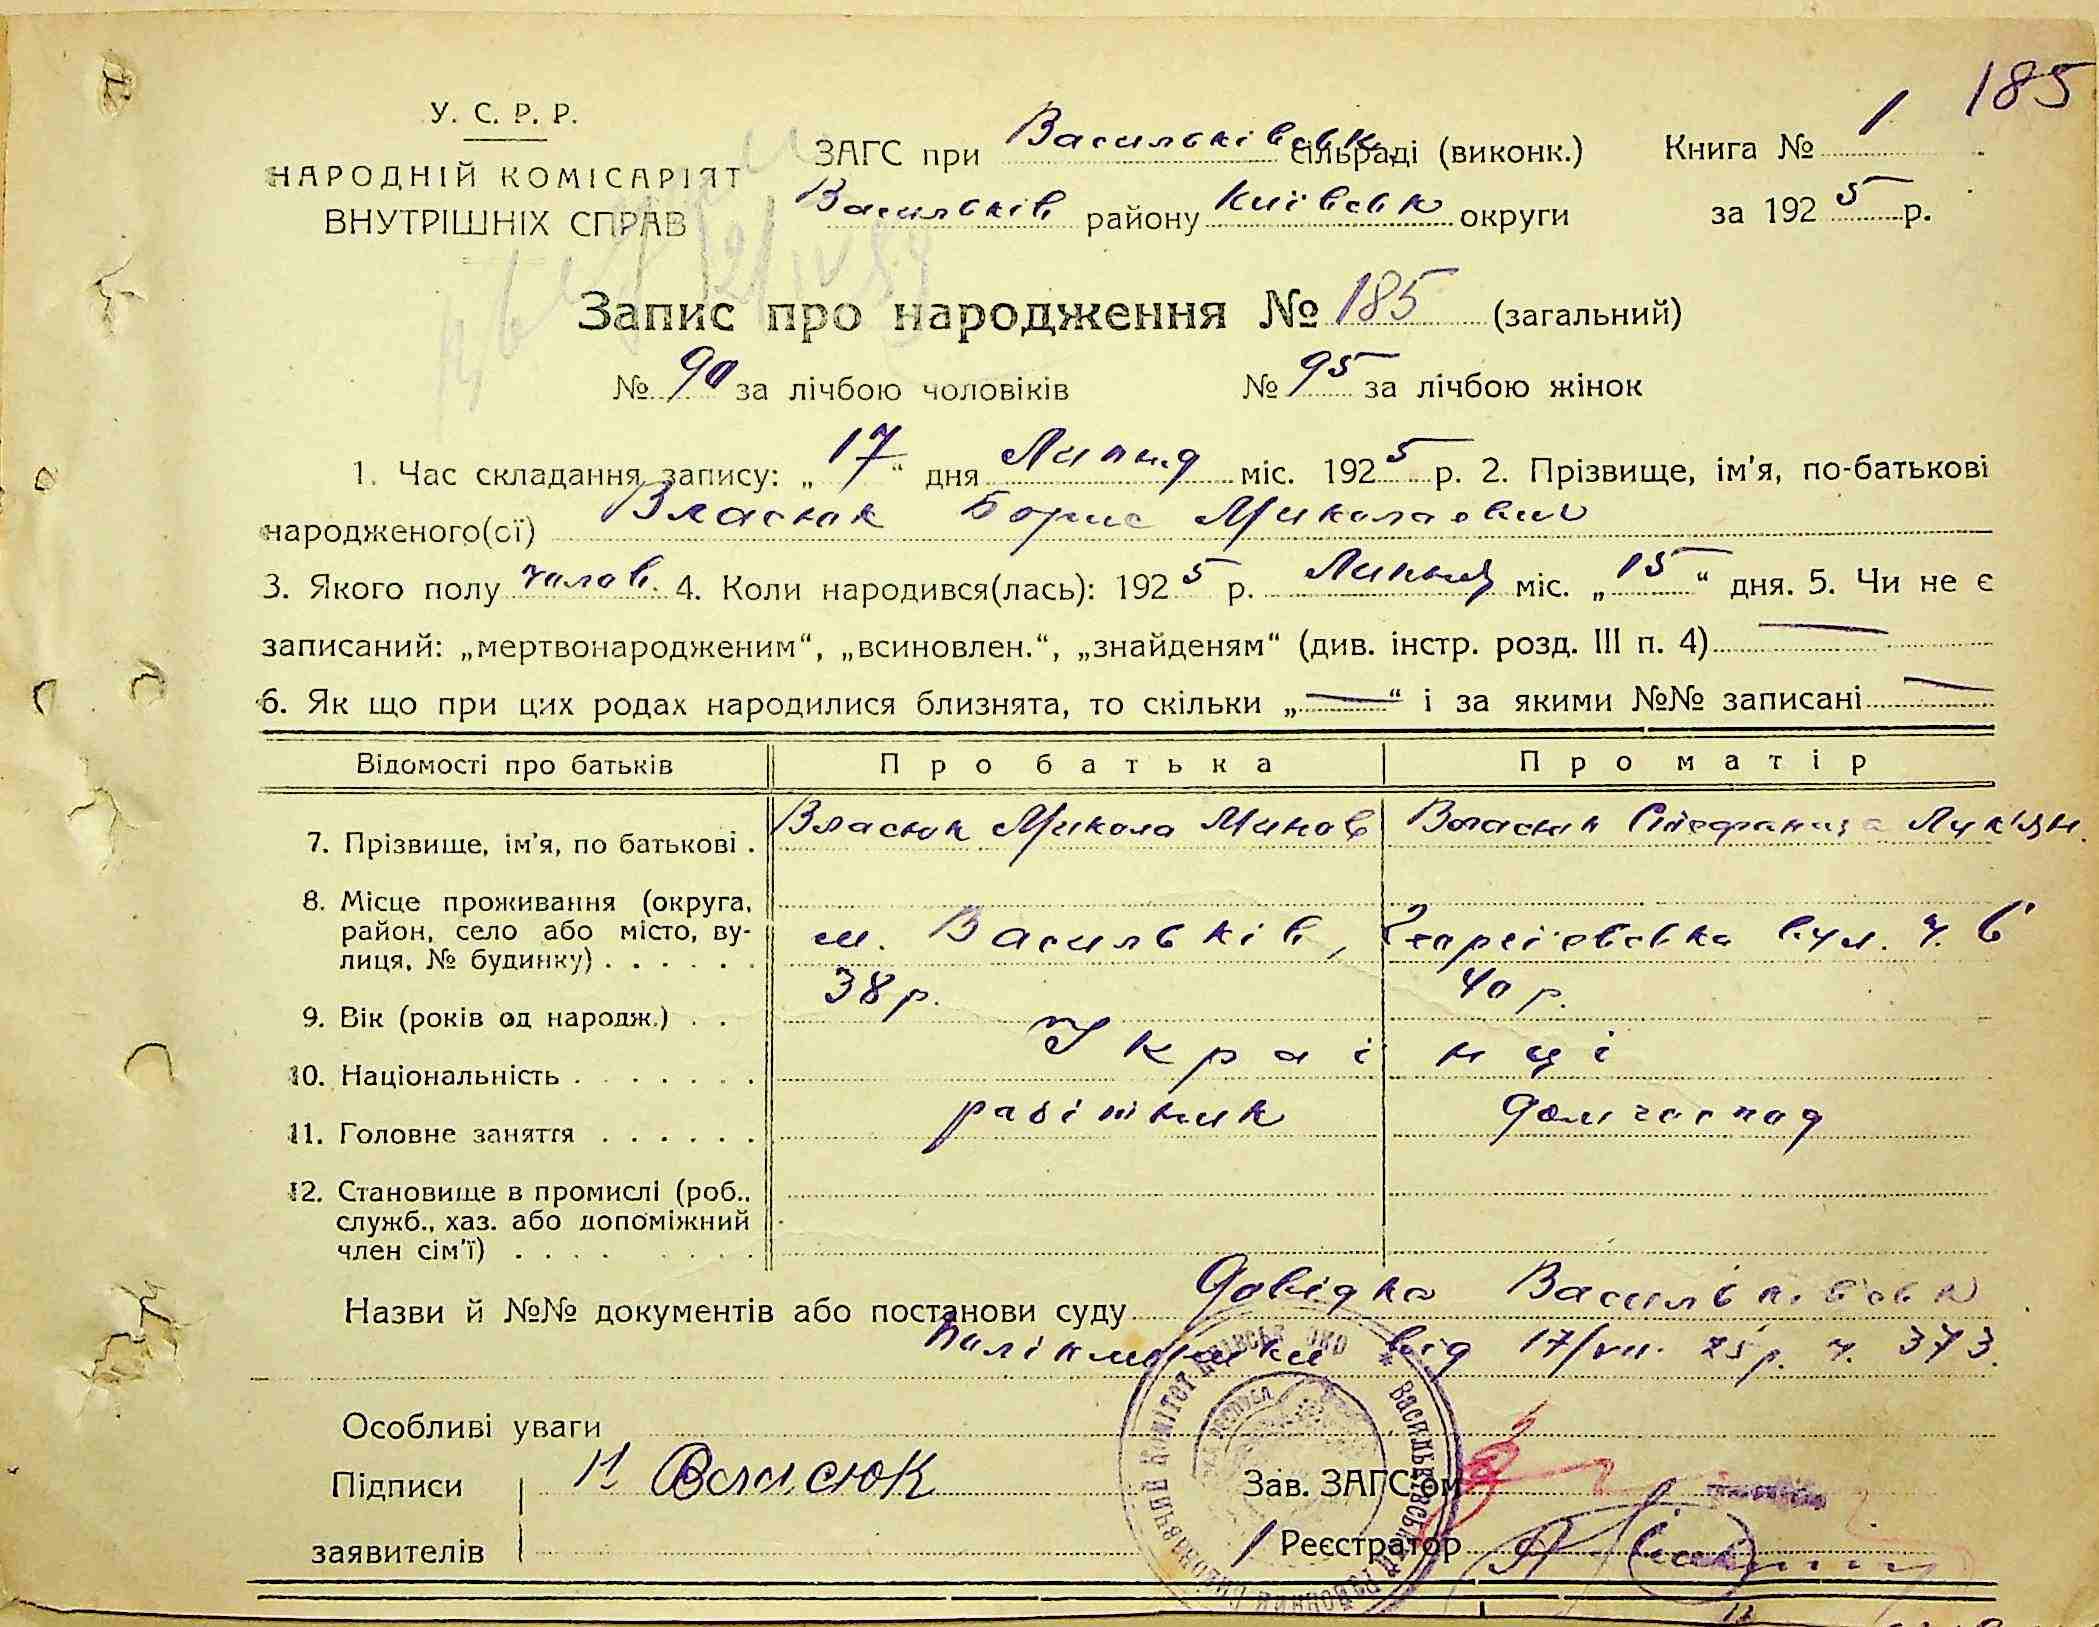 185
У. С. Р. Р.
НАРОДНІЙ КОМІСАРІЯТ
ВНУТРІШНІХ СПРАВ
ЗАГС при Васильківськ. сільраді (виконк.)
Васильків району Київськ округи
Книга № 1
за 1925 р.
Запис про народження № 185 (загальний)
№ 90 за лічбою чоловіків № 95 за лічбою жінок
1. Час складання запису: „17“ дня Липня міс. 1925 р. 2. Прізвище, ім'я, по-батькові
народженого(сї) Власюк Борис Миколаевич
3. Якого полу чолов. 4. Коли народився(лась): 1925 р. Липня міс. „15“ дня. 5. Чи не є
записаний: „мертвонародженим“, „всиновлен.“, „знайденям“ (див. інстр. розд. III п. 4) —
6. Як що при цих родах народилися близнята, то скільки „—“ і за якими №№ записані —
Відомості про батьків Про батька Про матір
7. Прізвище, ім'я, по батькові . Власюк Микола Минов Власюк Лук'ян.
8. Місце проживання (округа,
район, село або місто, ву-
лиця, № будинку) . . . . . . м. Васильків, вул. ч. 6
9. Вік (років од народж.) . . 38 р. 40 р.
10. Національність . . . . . . . Українці
11. Головне заняття . . . . . . робітник домгоспод
12. Становище в промислі (роб.,
служб., хаз. або допоміжний
член сім'ї) . . . . . . . .
Назви й №№ документів або постанови суду Довідка Васильківськ
від 17/VII. 25 р. ч. 373.
Особливі уваги
Підписи
заявителів
Н Власюк
Зав. ЗАГС'ом
Реєстратор
ВАСИЛЬКІВСЬКИЙ РАЙОННИЙ ВИКОНАВЧИЙ КОМІТЕТ